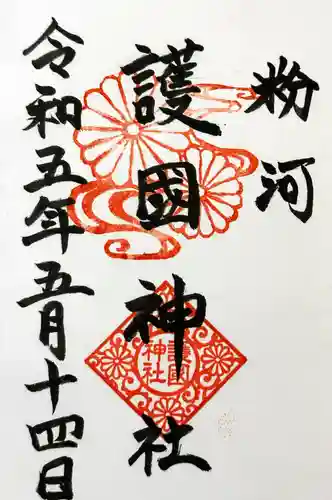 粉河
護國神社
令和五年五月十四日
護國
神社